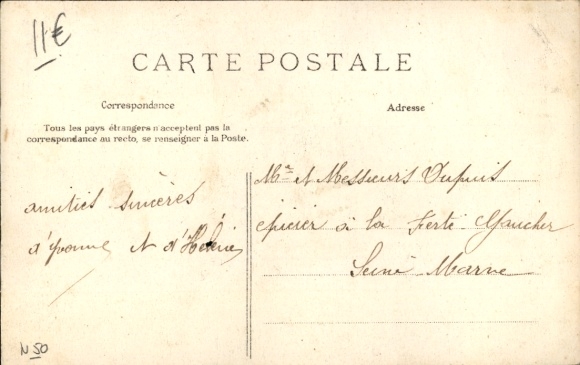 11€
CARTE POSTALE
Correspondance
Adresse
Tous les pays étrangers n'acceptent pas la
correspondance au recto, se renseigner à la Poste.
amitiés sincères
d'Yvonne et d'Hélène
Mr et Messieurs Dupuis
épicier à la Ferté Gaucher
Seine Marne
N 50